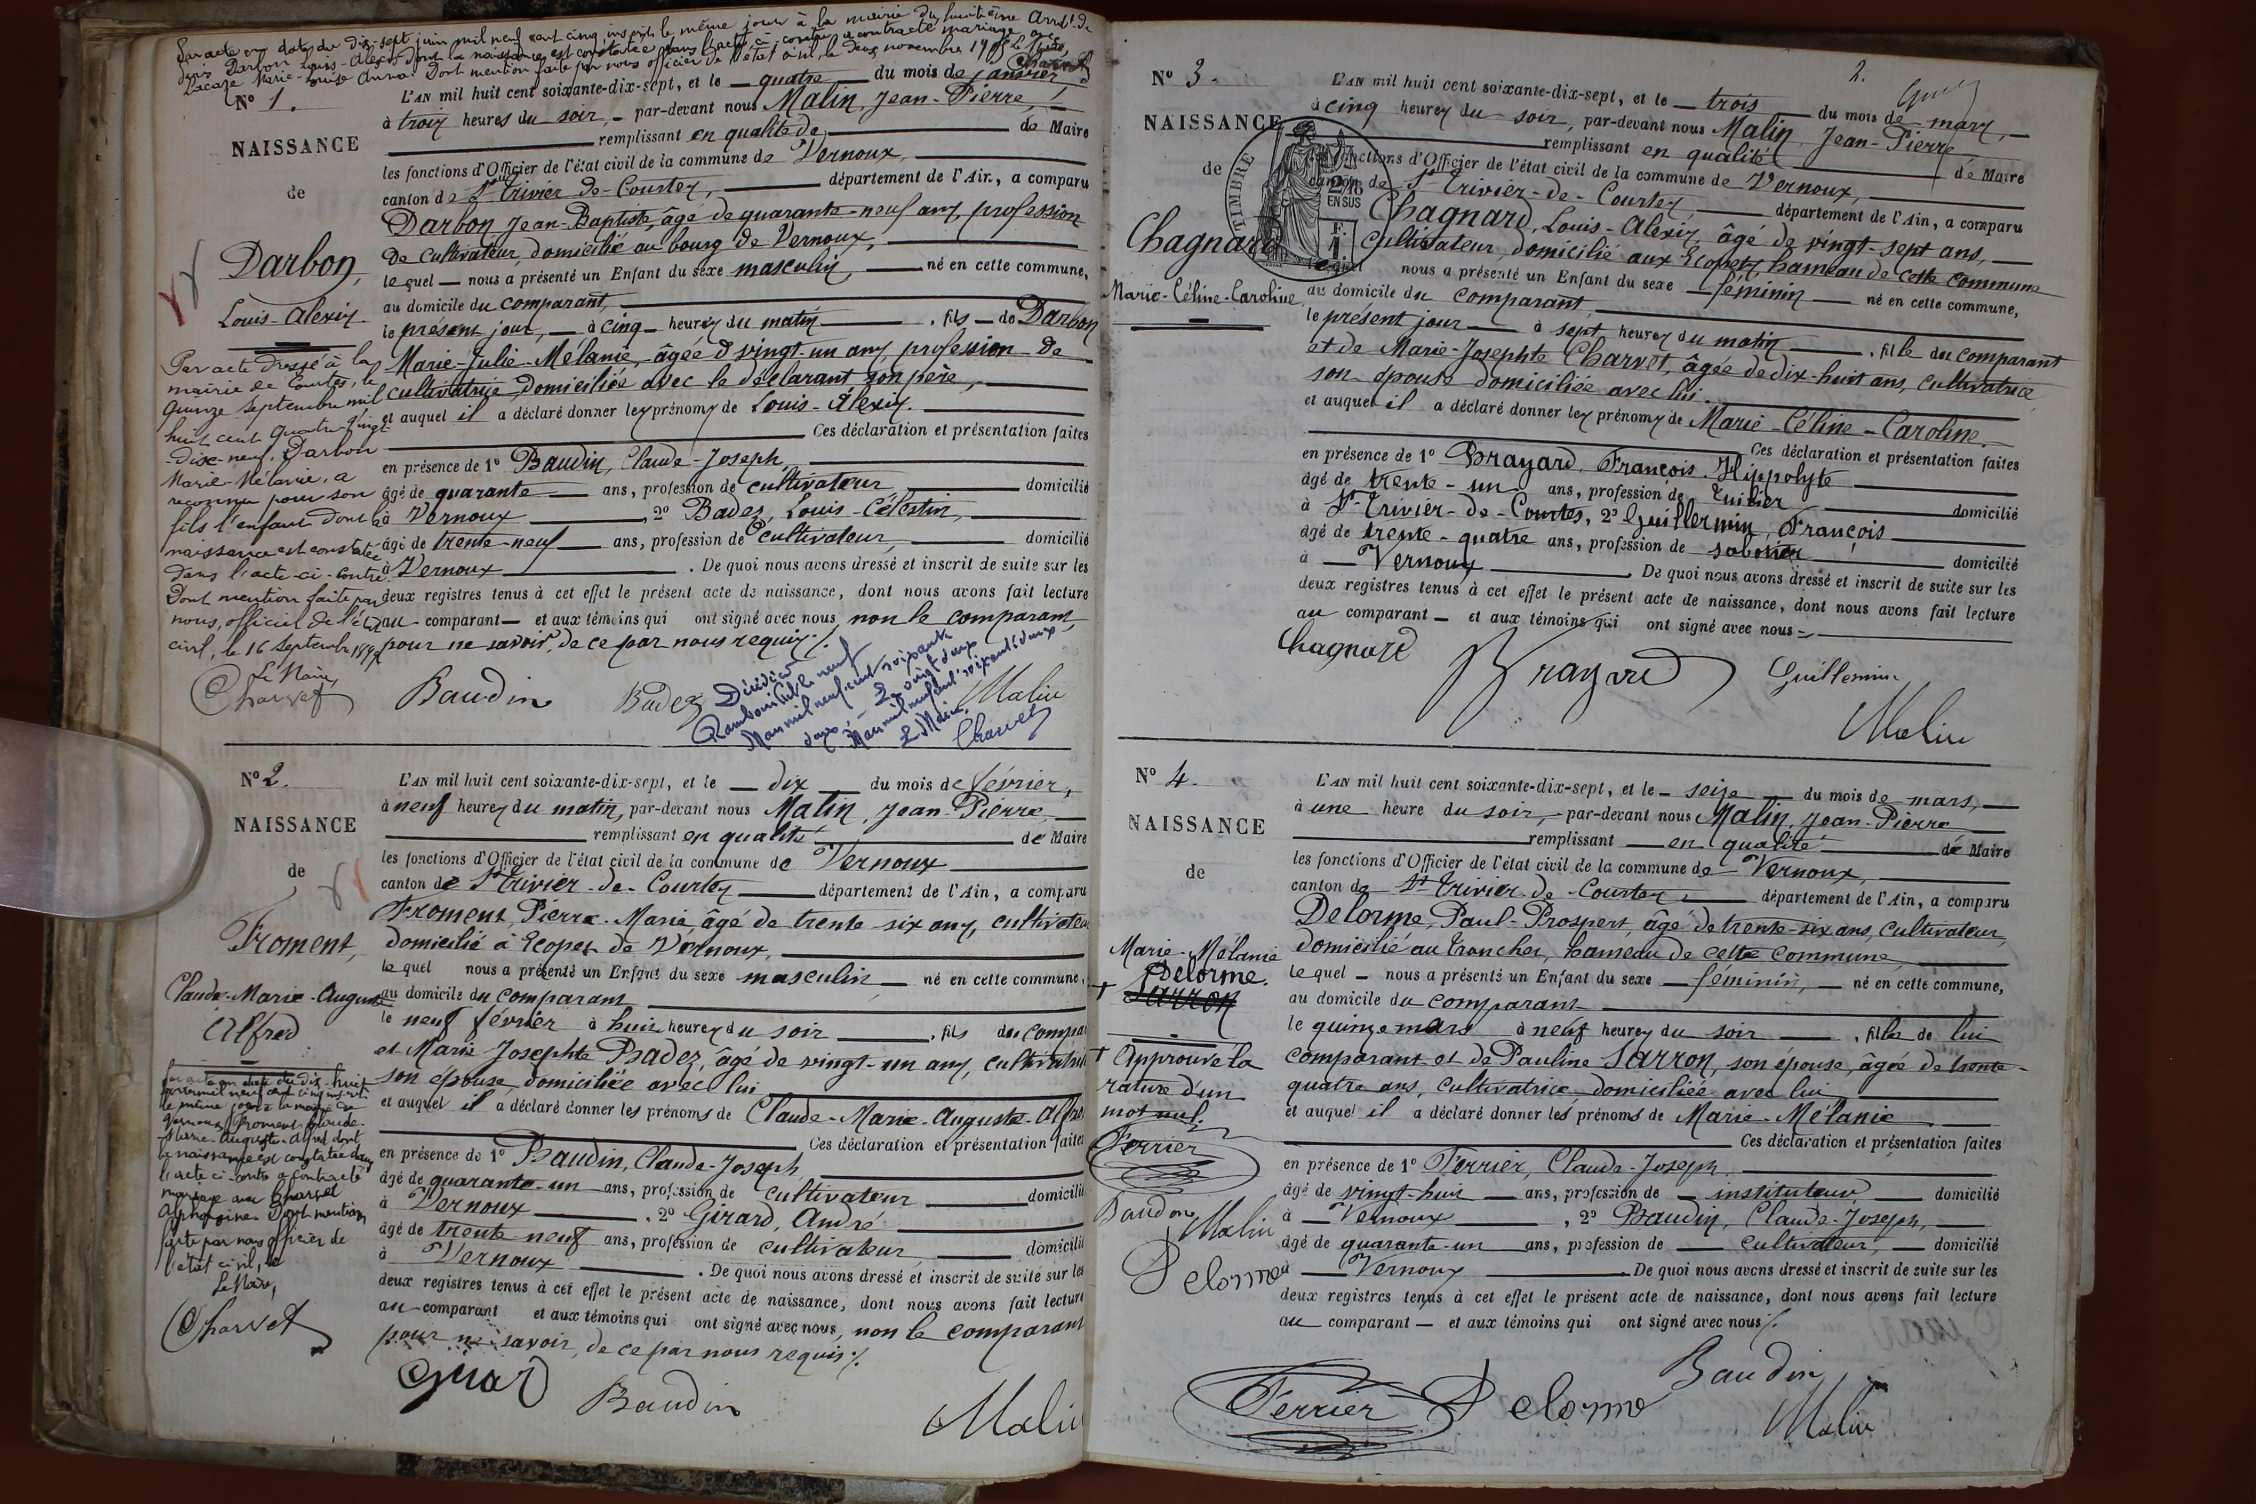 Par acte en date du dix-sept juin mil neuf cent cinq, inscrit le même jour à la mairie du huitième Arrdt. de
Paris Darbon Louis-Alexis dont la naissance est constatée dans l'acte ci-contre a contracté mariage avec
Lacaze Marie-Louise Anna. Dont mention faite par nous officier de l'état civil, le deux novembre 1905 Le Maire,
Charvet
N° 1.
NAISSANCE
de
Darbon,
Louis-Alexis.
L'AN mil huit cent soixante-dix-sept, et le quatre du mois de janvier
à trois heures du soir, par-devant nous Malin, Jean-Pierre,
remplissant en qualité de de Maire
les fonctions d'Officier de l'état civil de la commune de Vernoux,
canton de St Trivier-de-Courtes, département de l'Ain, a comparu
Darbon Jean-Baptiste, âgé de quarante-neuf ans, profession
de cultivateur, domicilié au bourg de Vernoux,
lequel nous a présenté un Enfant du sexe masculin, né en cette commune,
au domicile du comparant,
le présent jour, à cinq heures du matin, fils de Darbon
Marie-Julie-Mélanie, âgée d vingt-un ans, profession de
cultivatrice domiciliée avec le déclarant son père,
et auquel il a déclaré donner les prénoms de Louis-Alexis.
Ces déclaration et présentation faites
en présence de 1° Baudin, Claude-Joseph,
âgé de quarante ans, profession de cultivateur domicilié
à Vernoux, 2° Badez, Louis-Célestin,
âgé de trente-neuf ans, profession de cultivateur, domicilié
à Vernoux. De quoi nous avons dressé et inscrit de suite sur les
deux registres tenus à cet effet le présent acte de naissance, dont nous avons fait lecture
au comparant et aux témoins qui ont signé avec nous, non le comparant
pour ne savoir, de ce par nous requis./.
Par acte dressé à la
mairie de Courtes, le
quinze septembre mil
huit cent quatre-vingt
-dix-neuf, Darbon
Marie-Mélanie, a
reconnu pour son
fils l'enfant dont la
naissance est constatée
dans l'acte-ci-contre.
Dont mention faite par
nous, officier de l'état
civil, le 16 septembre 1899
Le Maire,
Charvet
Baudin
Badez
Malin
Décédé à
Rambouillet le neuf
Mars mil neuf cent soixante
deux. Le vingt deux
Mars mil neuf cent soixante deux
Le Maire,
Charvet
N° 2.
NAISSANCE
de
Froment,
Claude-Marie-Auguste
Alfred
L'AN mil huit cent soixante-dix-sept, et le dix du mois de février,
à neuf heures du matin, par-devant nous Malin, Jean-Pierre,
remplissant en qualité de Maire
les fonctions d'Officier de l'état civil de la commune de Vernoux
canton de St Trivier-de-Courtes département de l'Ain, a comparu
Froment, Pierre-Marie, âgé de trente six ans, cultivateur
domicilié à Ecopets de Vernoux,
lequel nous a présenté un Enfant du sexe masculin né en cette commune,
au domicile du comparant
le neuf février à huit heures du soir, fils du compa
et Marie Josephte Badez, âgé de vingt-un ans, cultivatri
son épouse domiciliée avec lui
et auquel il a déclaré donner les prénoms de Claude-Marie-Auguste-Alfre
Ces déclaration et présentation faites
en présence de 1° Baudin, Claude-Joseph
âgé de quarante-un ans, profession de cultivateur domicilié
à Vernoux, 2° Girard, André
âgé de trente neuf ans, profession de cultivateur domicilié
à Vernoux. De quoi nous avons dressé et inscrit de suite sur les
deux registres tenus à cet effet le présent acte de naissance, dont nous avons fait lecture
au comparant et aux témoins qui ont signé avec nous, non le comparant
pour ne savoir, de ce par nous requis ./.
Par acte en date du dix-huit
mil neuf cent cinq inscrit
le même jour à la mairie de
Vernoux, Froment Claude-
Marie-Auguste-Alfred dont
la naissance est constatée dans
l'acte ci-contre a contracté
mariage avec Charvet
Alphonsine. Dont mention
faite par nous officier de
l'état civil, le
Le Maire,
Charvet
Girard
Baudin
Malin
2.
N° 3.
NAISSANCE
de
Chagnard
Marie-Céline-Caroline
TIMBRE
2/10
EN SUS
F.
1.
L'AN mil huit cent soixante-dix-sept, et le trois du mois de mars,
à cinq heures du soir, par-devant nous Malin, Jean-Pierre
remplissant en qualité de Maire
fonctions d'Officier de l'état civil de la commune de Vernoux,
canton de St Trivier-de-Courtes département de l'Ain, a comparu
Chagnard, Louis-Alexis, âgé de vingt-sept ans,
cultivateur, domicilié aux Ecopets, hameau de cette commune
lequel nous a présenté un Enfant du sexe féminin né en cette commune,
au domicile du comparant,
le présent jour à sept heures du matin, fille du comparant
et de Marie-Josephte Charvet, âgée de dix-huit ans, cultivatrice
son épouse domiciliée avec lui.
et auquel il a déclaré donner les prénoms de Marie-Céline-Caroline.
Ces déclaration et présentation faites
en présence de 1° Brayard, François-Hippolyte
âgé de trente-un ans, profession de tuilier
à St-Trivier-de-Courtes, 2° Guillermin, François domicilié
âgé de trente-quatre ans, profession de sabotier
à Vernoux. domicilié
De quoi nous avons dressé et inscrit de suite sur les
deux registres tenus à cet effet le présent acte de naissance, dont nous avons fait lecture
au comparant et aux témoins qui ont signé avec nous
Chagnard
Brayard
Guillermin
Malin
N° 4.
NAISSANCE
de
Marie-Mélanie
Delorme.
† Sarron
L'AN mil huit cent soixante-dix-sept, et le seize du mois de mars,
à une heure du soir, par-devant nous Malin, Jean-Pierre
remplissant en qualité de Maire
les fonctions d'Officier de l'état civil de la commune de Vernoux,
canton de St Trivier-de-Courtes, département de l'Ain, a comparu
Delorme, Paul-Prosper, âgé de trente-six ans, cultivateur,
domicilié au Trancher, hameau de cette commune
lequel nous a présenté un Enfant du sexe féminin, né en cette commune,
au domicile du comparant
le quinze mars à neuf heures du soir, fille de lui
comparant et de Pauline Sarron, son épouse, âgée de trente-
quatre ans, cultivatrice domiciliée avec lui
et auquel il a déclaré donner les prénoms de Marie-Mélanie.
Ces déclaration et présentation faites
en présence de 1° Ferrier, Claude-Joseph
âgé de vingt-huit ans, profession de instituteur, domicilié
à Vernoux, 2° Baudin, Claude-Joseph,
âgé de quarante-un ans, profession de cultivateur, domicilié
à Vernoux. De quoi nous avons dressé et inscrit de suite sur les
deux registres tenus à cet effet le présent acte de naissance, dont nous avons fait lecture
au comparant et aux témoins qui ont signé avec nous ./.
† Approuvé la
rature d'un
mot nul.
Ferrier
Baudin
Malin
Delorme
Baudin
Ferrier
Delorme
Malin